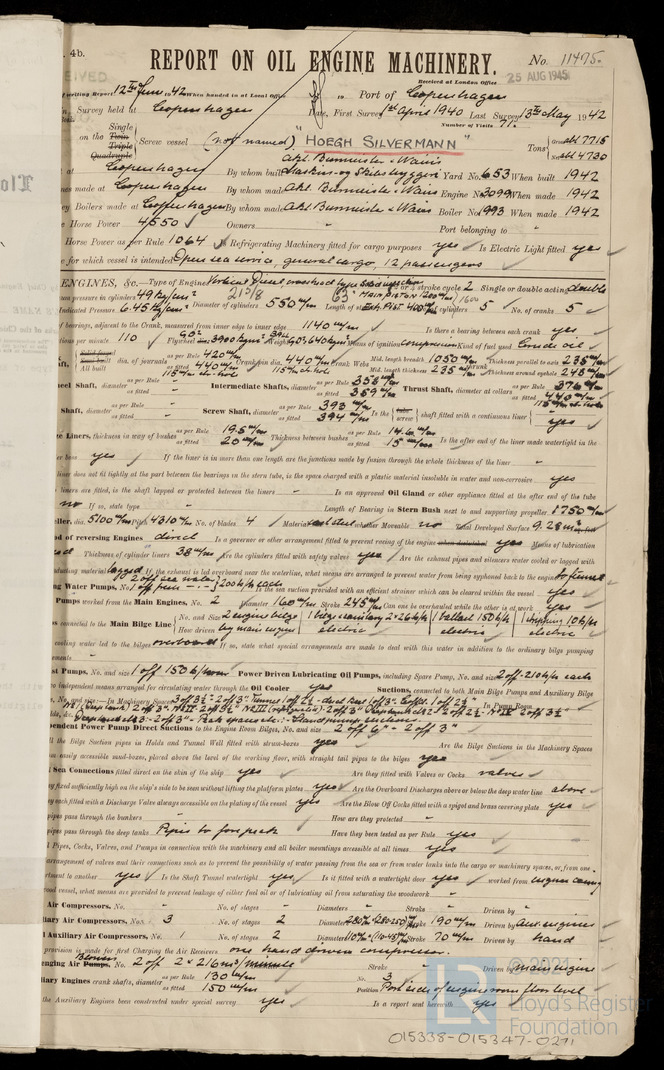 4b.
REPORT ON OIL ENGINE MACHINERY.
No. 11475.
Received at London Office
25 AUG 1945
writing Report 12th June 1942 When handed in at Local Office 19 Port of Copenhagen
Survey held at Copenhagen Date, First Survey 1st April 1940 Last Survey 13th May 1942
Number of Visits 71.
on the Single Twin Triple Quadruple Screw vessel (not named) "HOEGH SILVERMANN" Tons Gross abt 7715 Net abt 4730
at Copenhagen By whom built Akt. Burmeister & Wain's Maskin- og Skibsbyggeri Yard No. 653 When built 1942
nes made at Copenhagen By whom made Akt. Burmeister & Wain's Engine No. 3099 When made 1942
y Boilers made at Copenhagen By whom made Akt. Burmeister & Wain's Boiler No. 993 When made 1942
Horse Power 4550 Owners Port belonging to
Horse Power as per Rule 1064 Is Refrigerating Machinery fitted for cargo purposes yes Is Electric Light fitted yes
e for which vessel is intended Open sea service, general cargo, 12 passengers
ENGINES, &c.—Type of Engine Vertical Diesel crosshead type solid injection 2 or 4 stroke cycle 2 Single or double acting double
pressure in cylinders 49 kg/cm² Diameter of cylinders 550 m/m Length of stroke Main piston 1200 m/m Exh. Pist. 400 m/m No. of cylinders 5 No. of cranks 5
Indicated Pressure 6.45 kg/cm² 21 5/8 63"
f bearings, adjacent to the Crank, measured from inner edge to inner edge 1140 m/m Is there a bearing between each crank yes
tions per minute 110 Flywheel Means of ignition compression Kind of fuel used Diesel oil
dia. of journals as per Rule 420 m/m as fitted 440 m/m Crank pin dia. 440 m/m Crank Webs Mid. length breadth 1050 m/m Thickness parallel to axis 235 m/m
All built 115 m/m ctr. hole Mid. length thickness 235 m/m Thickness around eyehole 248 m/m
heel Shaft, diameter as per Rule as fitted Intermediate Shafts, diameter as per Rule 358 m/m as fitted 359 m/m Thrust Shaft, diameter at collars as per Rule 376 m/m as fitted 440 m/m
Shaft, diameter as per Rule as fitted Screw Shaft, diameter as per Rule 393 m/m as fitted 394 m/m Is the tube screw shaft fitted with a continuous liner yes
ze Liners, thickness in way of bushes as per Rule 19.5 m/m as fitted 20 m/m Thickness between bushes as per Rule 14.6 m/m as fitted 15 m/m Is the after end of the liner made watertight in the
er boss yes If the liner is in more than one length are the junctions made by fusion through the whole thickness of the liner
liner does not fit tightly at the part between the bearings in the stern tube, is the space charged with a plastic material insoluble in water and non-corrosive yes
liners are fitted, is the shaft lapped or protected between the liners Is an approved Oil Gland or other appliance fitted at the after end of the tube
no If so, state type Length of Bearing in Stern Bush next to and supporting propeller 1750 m/m
ller, dia. 5100 m/m Pitch 4310 m/m No. of blades 4 Material whether Moveable no Total Developed Surface 9.28 m²
od of reversing Engines direct Is a governor or other arrangement fitted to prevent racing of the engine when declutched yes Means of lubrication
Thickness of cylinder liners 38 m/m Are the cylinders fitted with safety valves yes Are the exhaust pipes and silencers water cooled or lagged with
nducting material lagged If the exhaust is led overboard near the waterline, what means are arranged to prevent water from being syphoned back to the engine to funnel
ng Water Pumps, No. 2 off sea water 1 off from 200 t/h each Is the sea suction provided with an efficient strainer which can be cleared within the vessel yes
Pumps worked from the Main Engines, No. 2 Diameter 160 m/m Stroke 245 m/m Can one be overhauled while the other is at work yes
s connected to the Main Bilge Line No. and Size 2 engine bilge 1 bilge sanitary 2×26 t/h 1 ballast 150 t/h 10 t/h
How driven by main engine electric electric electric
cooling water led to the bilges overboard If so, state what special arrangements are made to deal with this water in addition to the ordinary bilge pumping
ements
st Pumps, No. and size 1 off 150 t/h Power Driven Lubricating Oil Pumps, including Spare Pump, No. and size 2 off - 210 t/h each
o independent means arranged for circulating water through the Oil Cooler yes Suctions, connected to both Main Bilge Pumps and Auxiliary Bilge
No. and size:—In Machinery Spaces In Pump Room
pendent Power Pump Direct Suctions to the Engine Room Bilges, No. and size 2 off 6" - 2 off 3"
ll the Bilge Suction pipes in Holds and Tunnel Well fitted with strum-boxes yes Are the Bilge Suctions in the Machinery Spaces
om easily accessible mud-boxes, placed above the level of the working floor, with straight tail pipes to the bilges yes
Sea Connections fitted direct on the skin of the ship yes Are they fitted with Valves or Cocks valves
y fixed sufficiently high on the ship's side to be seen without lifting the platform plates yes Are the Overboard Discharges above or below the deep water line above
y each fitted with a Discharge Valve always accessible on the plating of the vessel yes Are the Blow Off Cocks fitted with a spigot and brass covering plate yes
ipes pass through the bunkers How are they protected
ipes pass through the deep tanks Pipes to forepeak Have they been tested as per Rule yes
l Pipes, Cocks, Valves, and Pumps in connection with the machinery and all boiler mountings accessible at all times yes
arrangement of valves and their connections such as to prevent the possibility of water passing from the sea or from water tanks into the cargo or machinery spaces, or from one
rtment to another yes Is the Shaft Tunnel watertight yes Is it fitted with a watertight door yes worked from engine casing
ood vessel, what means are provided to prevent leakage of either fuel oil or of lubricating oil from saturating the woodwork
Air Compressors, No. No. of stages Diameters Stroke Driven by
liary Air Compressors, No. 3 No. of stages 2 Diameters Stroke 190 m/m Driven by Aux. engines
l Auxiliary Air Compressors, No. 1 No. of stages 2 Diameters Stroke 70 m/m Driven by hand
provision is made for first Charging the Air Receivers one hand driven compressor.
enging Air Pumps, Blowers No. 2 off 2 × 216 m³/minute Stroke Driven by main engine
liary Engines crank shafts, diameter as per Rule 130 m/m as fitted 150 m/m No. 3 Position Port side of engine room floor level
the Auxiliary Engines been constructed under special survey. yes Is a report sent herewith yes
© 2021
LR
Lloyd's Register
Foundation
015338-015347-0271